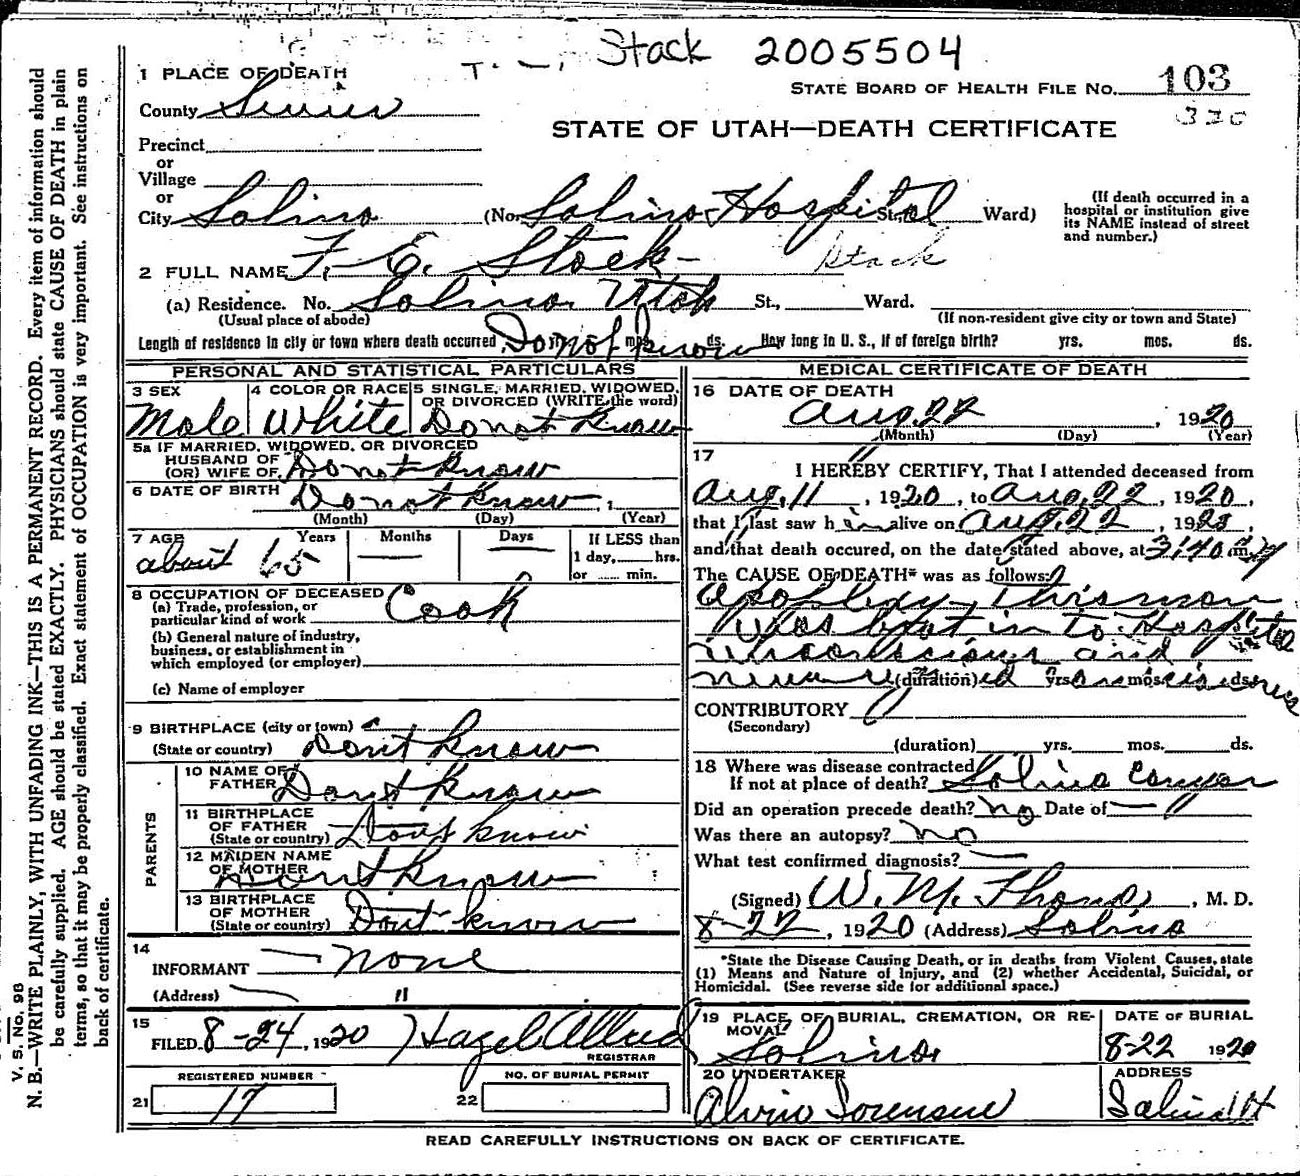 Stack 2005504
1 PLACE OF DEATH
STATE BOARD OF HEALTH FILE No. 103
County Sevier
320
STATE OF UTAH—DEATH CERTIFICATE
Precinct
or
Village
or
City Salina (No. Salina Hospital St., Ward)
(If death occurred in a hospital or institution give its NAME instead of street and number.)
2 FULL NAME F. E. Stock Stack
(a) Residence. No. Salina Utah St., Ward.
(Usual place of abode) (If non-resident give city or town and State)
Length of residence in city or town where death occurred Do not know yrs. mos. ds. How long in U. S., if of foreign birth? yrs. mos. ds.
PERSONAL AND STATISTICAL PARTICULARS
3 SEX Male
4 COLOR OR RACE White
5 SINGLE, MARRIED, WIDOWED, OR DIVORCED (WRITE the word) Do not know
5a IF MARRIED, WIDOWED, OR DIVORCED
HUSBAND OF
(OR) WIFE OF Do not know
6 DATE OF BIRTH Do not know, 1
(Month) (Day) (Year)
7 AGE about 65 Years — Months — Days
If LESS than 1 day, hrs. or min.
8 OCCUPATION OF DECEASED
(a) Trade, profession, or particular kind of work Cook
(b) General nature of industry, business, or establishment in which employed (or employer)
(c) Name of employer
9 BIRTHPLACE (city or town)
(State or country) Dont know
PARENTS
10 NAME OF FATHER Dont know
11 BIRTHPLACE OF FATHER (State or country) Dont know
12 MAIDEN NAME OF MOTHER Dont know
13 BIRTHPLACE OF MOTHER (State or country) Dont know
14
INFORMANT — none
(Address) — "
15
FILED 8-24, 1920 Hazel Allred
REGISTRAR
REGISTERED NUMBER
21 17
NO. OF BURIAL PERMIT
22
MEDICAL CERTIFICATE OF DEATH
16 DATE OF DEATH
Aug. 22, 1920
(Month) (Day) (Year)
17
I HEREBY CERTIFY, That I attended deceased from
Aug. 11, 1920, to Aug. 22, 1920,
that I last saw h im alive on Aug. 22, 1920,
and that death occured, on the date stated above, at 3:40 m
The CAUSE OF DEATH* was as follows:
Apoplexy, This man
was brot in to Hospital
unconscious and
never regained consciousness
(duration) yrs. mos. ds.
CONTRIBUTORY
(Secondary)
(duration) yrs. mos. ds.
18 Where was disease contracted
If not at place of death? Salina Canyon
Did an operation precede death? No Date of —
Was there an autopsy? no
What test confirmed diagnosis? —
(Signed) W. M., M. D.
8-22, 1920 (Address) Salina
*State the Disease Causing Death, or in deaths from Violent Causes, state
(1) Means and Nature of Injury, and (2) whether Accidental, Suicidal, or
Homicidal. (See reverse side for additional space.)
19 PLACE OF BURIAL, CREMATION, OR REMOVAL Salina
DATE OF BURIAL 8-22 1920
20 UNDERTAKER Alvin Sorensen
ADDRESS Salina Ut
READ CAREFULLY INSTRUCTIONS ON BACK OF CERTIFICATE.
V. S. No. 98
N. B.—WRITE PLAINLY, WITH UNFADING INK—THIS IS A PERMANENT RECORD. Every item of information should
be carefully supplied. AGE should be stated EXACTLY. PHYSICIANS should state CAUSE OF DEATH in plain
terms, so that it may be properly classified. Exact statement of OCCUPATION is very important. See instructions on
back of certificate.